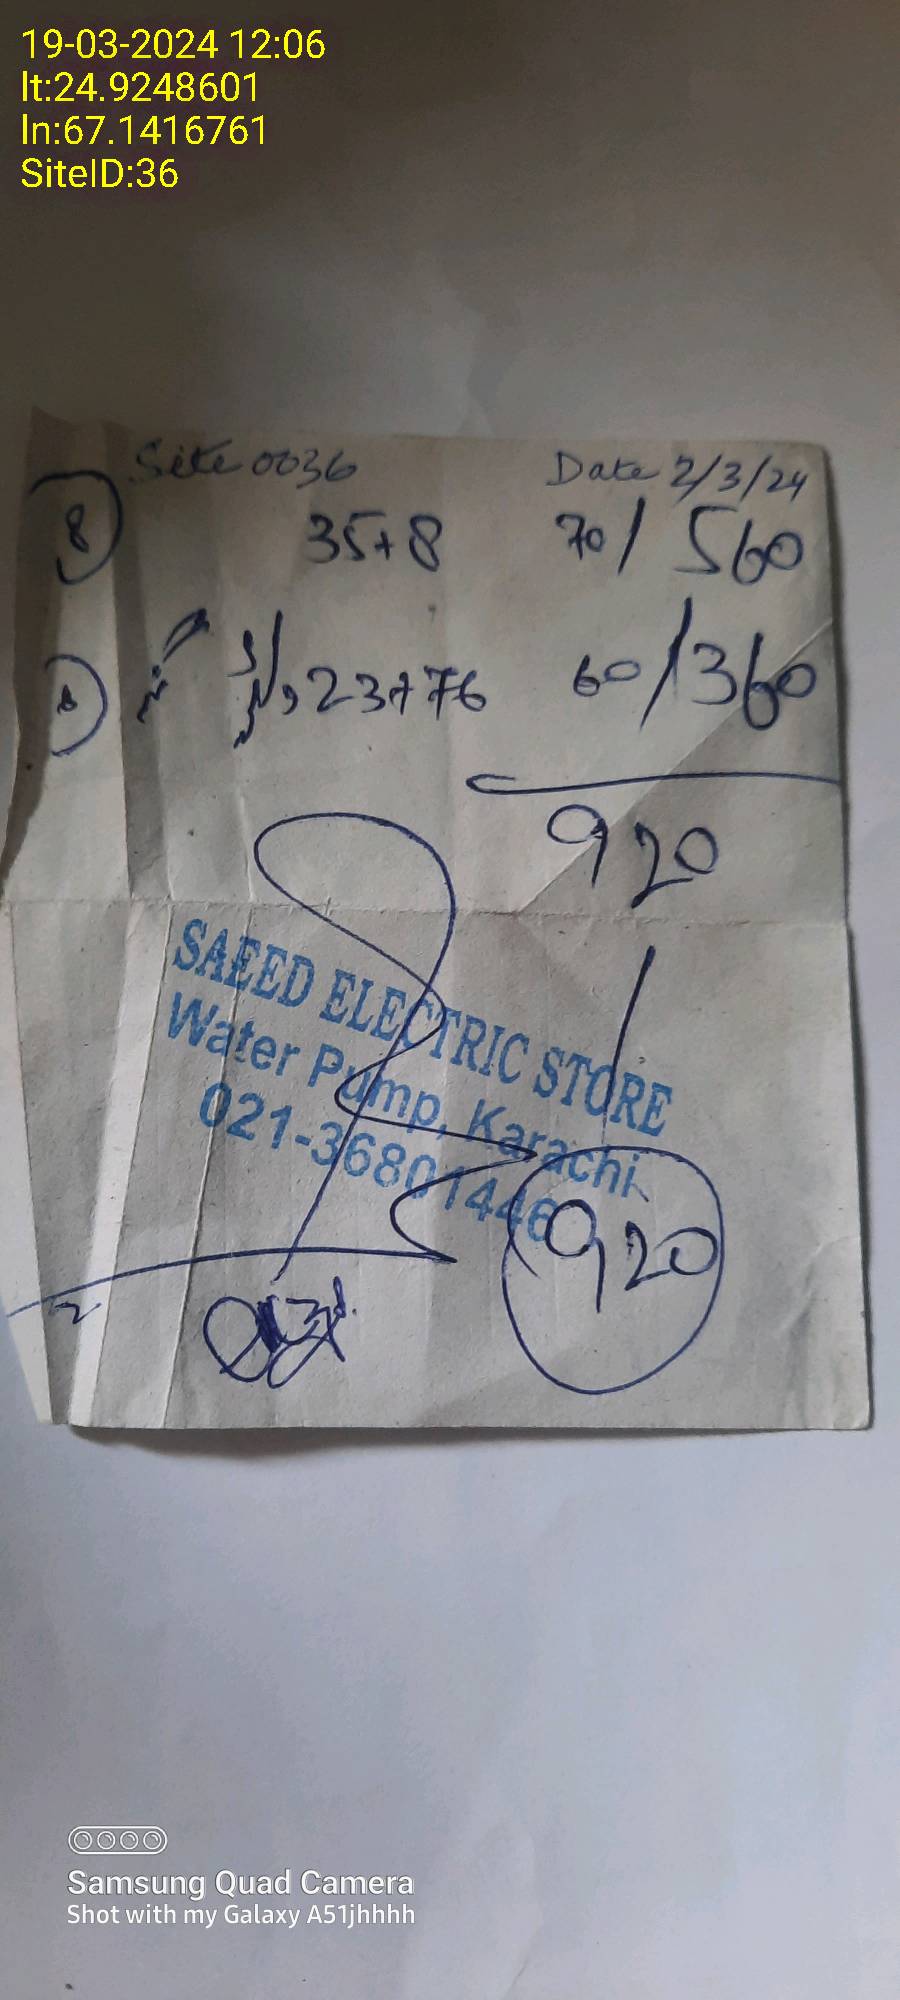 19-03-2024 12:06
lt:24.9248601
ln:67.1416761
SiteID:36
Site 0036 Date 2/3/24
8 35+8 70/ 560
23+76 60/360
920
SAEED ELECTRIC STORE
Water Pump, Karachi
021-36801446
920
Samsung Quad Camera
Shot with my Galaxy A51jhhhh